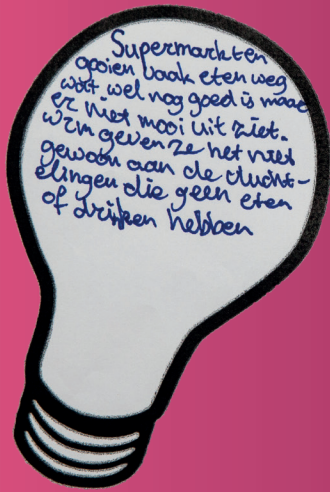 Supermarkten
gooien vaak eten weg
wat wel nog goed is maar
er niet mooi uit ziet.
w rm geven ze het niet
gewoon aan de vlucht-
elingen die geen eten
of drinken hebben